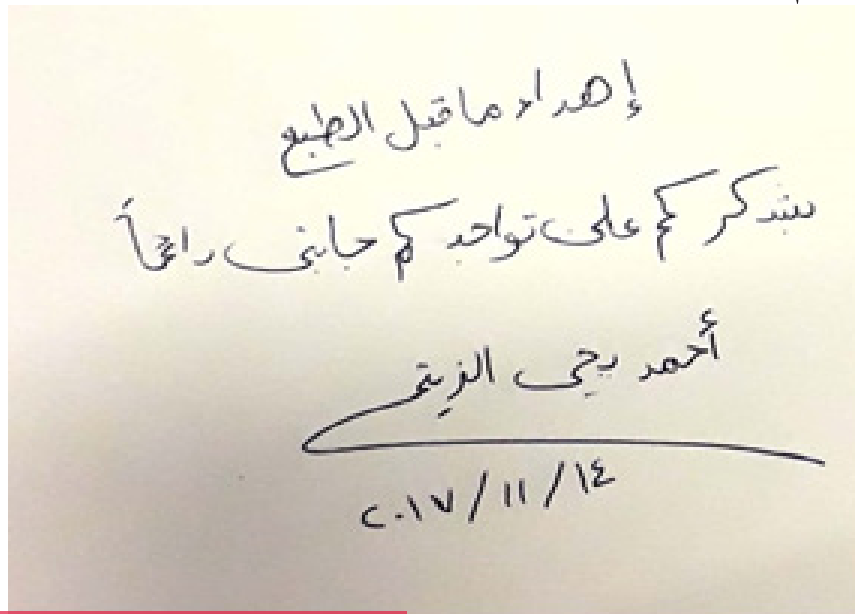 إهداء ما قبل الطبع
بشكركم على تواجدكم جانبي دائماً
أحمد يحيى
٢٠١٧/١١/١٤